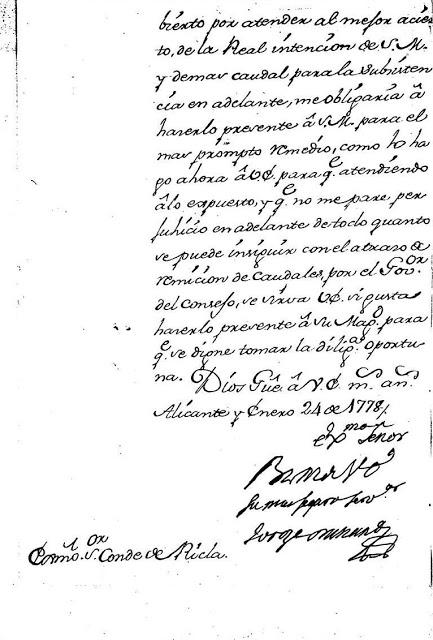 bierto por atender al mejor acier
to, de la Real intencion de S. M.
y demas caudal para la subsisten
cia en adelante, me obligaria â
hacerlo presente â S. M. para el
mas prompto remedio, como lo ha
go ahora â V.E. para q.e atendiendo
âlo expuesto, y q.e no me pare per
juhicio en adelante de todo quanto
se puede inseguir con el atraso de
remicion de caudales, por el Gov.or
del Consejo, se sirva V.E. si gusta
hacerlo presente â Su Mag.d para
q.e se digne tomar la dilig.a oportu
na. Dios Gûe. â V.E. m.s an.s
Alicante y Enero 24 de 1778,
Ex.mo Señor
B L M a V.E.
Su mas seguro serv.or
Jorge
Ex.mo S.or Conde de Ricla.